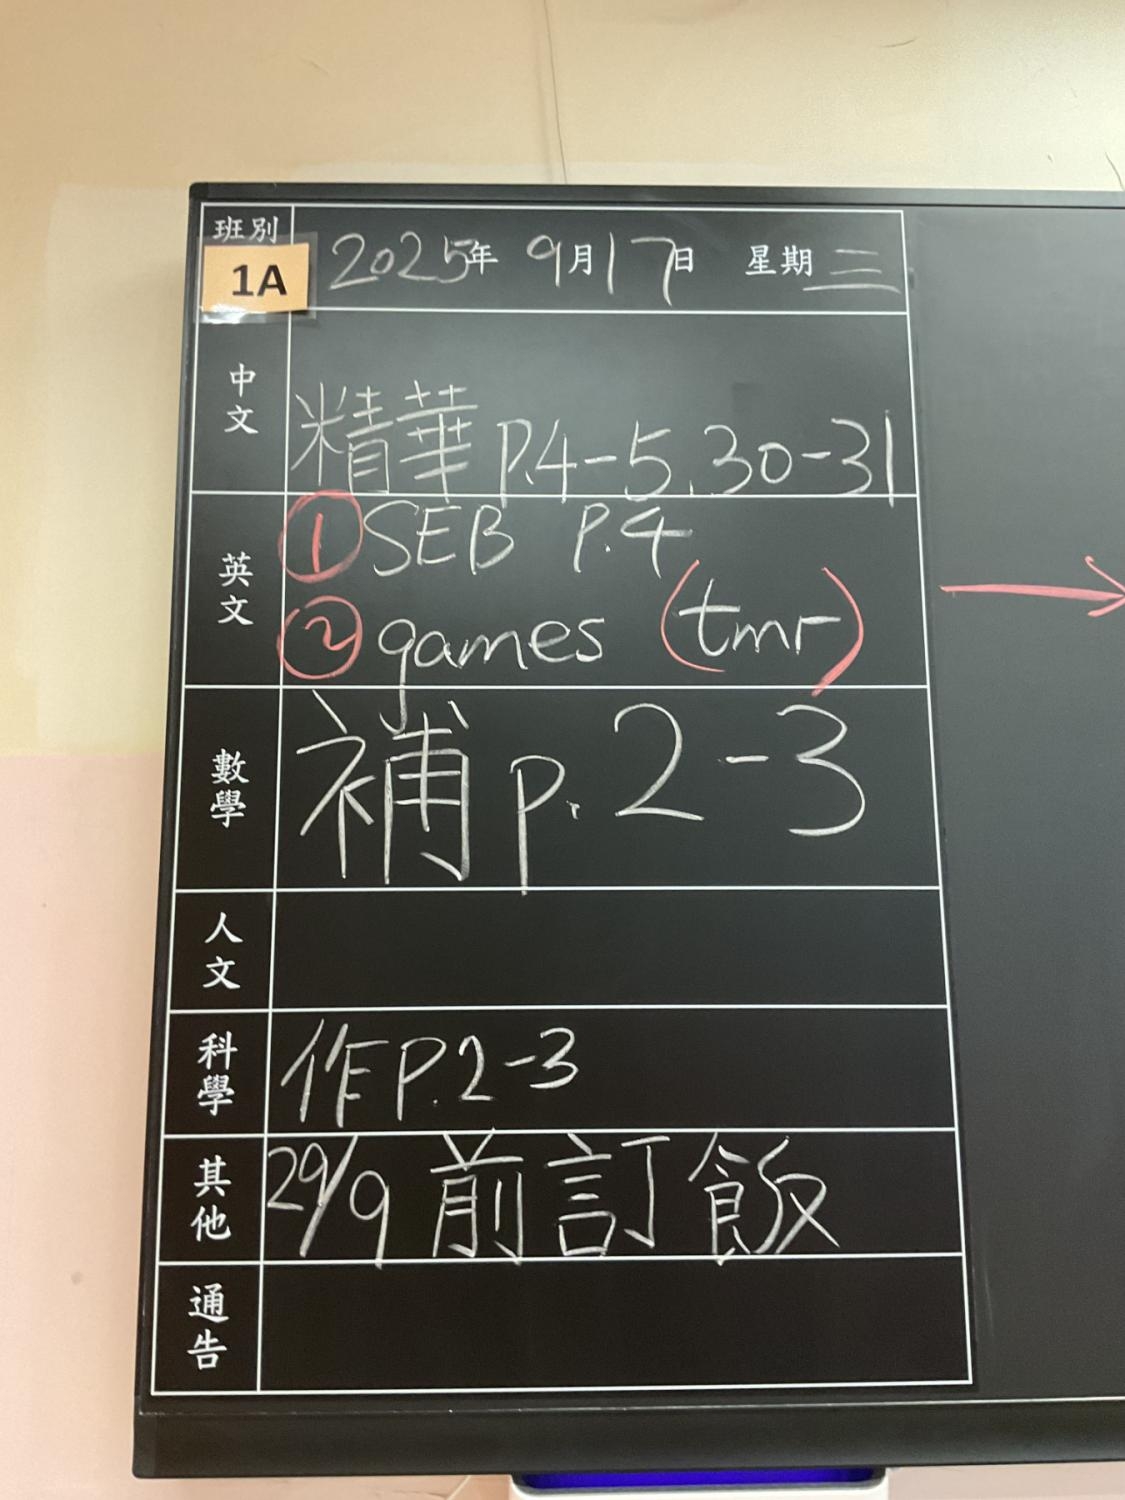 班別
1A
2025年 9月17日 星期三
中文
精華 P.4-5,30-31
英文
① SEB P.4
② games (tmr)
數學
補 p.2-3
人文
科學
作 P.2-3
其他
29/9 前訂飯
通告